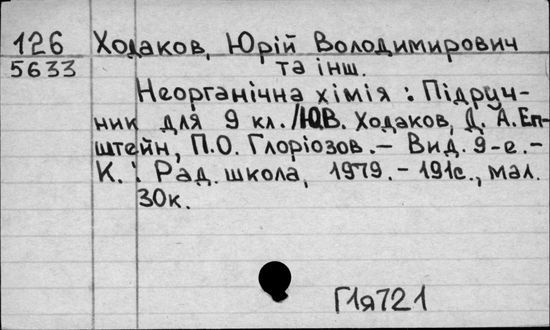 126 Ходаков, Юрій Володимирович
5633 та інш.
Неорганічна хімія : Підруч-
ник для 9 кл. /Ю.В. Ходаков, Д. А. Еп-
штейн, П.О. Глоріозов. – Вид. 9-е. –
К. : Рад. школа, 1979. – 191с., мал.
30к.
Г1я721